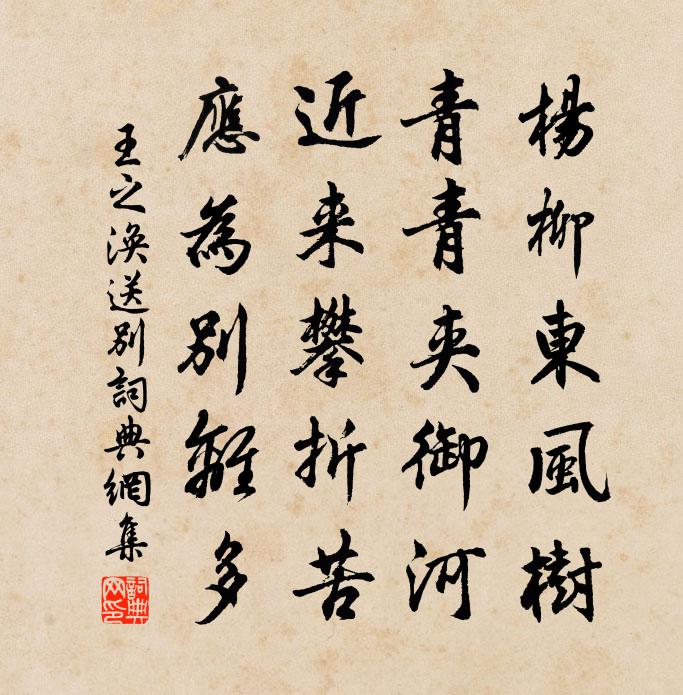 楊柳東風樹
青青夾御河
近来攀折苦
應為別離多
王之渙送別詞典網集
詞典網印